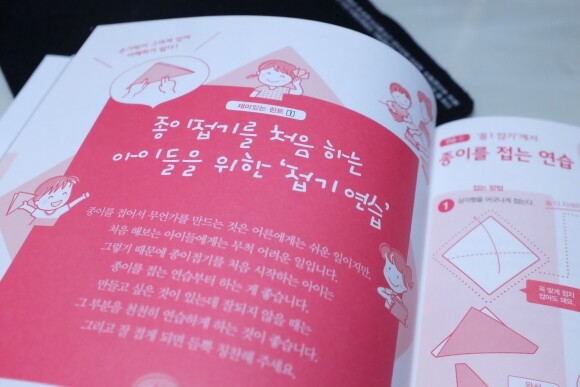 손가락이 그려져 있어
이해하기 쉽다!
재미있는 힌트 1
종이접기를 처음 하는
아이들을 위한 '접기 연습'
종이를 접어서 무언가를 만드는 것은 어른에게는 쉬운 일이지만,
처음 해보는 아이들에게는 무척 어려운 일입니다.
그렇기 때문에 종이접기를 처음 시작하는 아이는
종이를 접는 연습부터 하는 게 좋습니다.
만들고 싶은 것이 있는데 잘되지 않을 때는
그 부분을 천천히 연습하게 하는 것이 좋습니다.
그리고 잘 접게 되면 듬뿍 칭찬해 주세요.
접기'에서
종이를 접는 연습
접는 방법
1 삼각형을 어긋나게 접는다.
꼭 맞게 접지
않아도 돼요.
완성